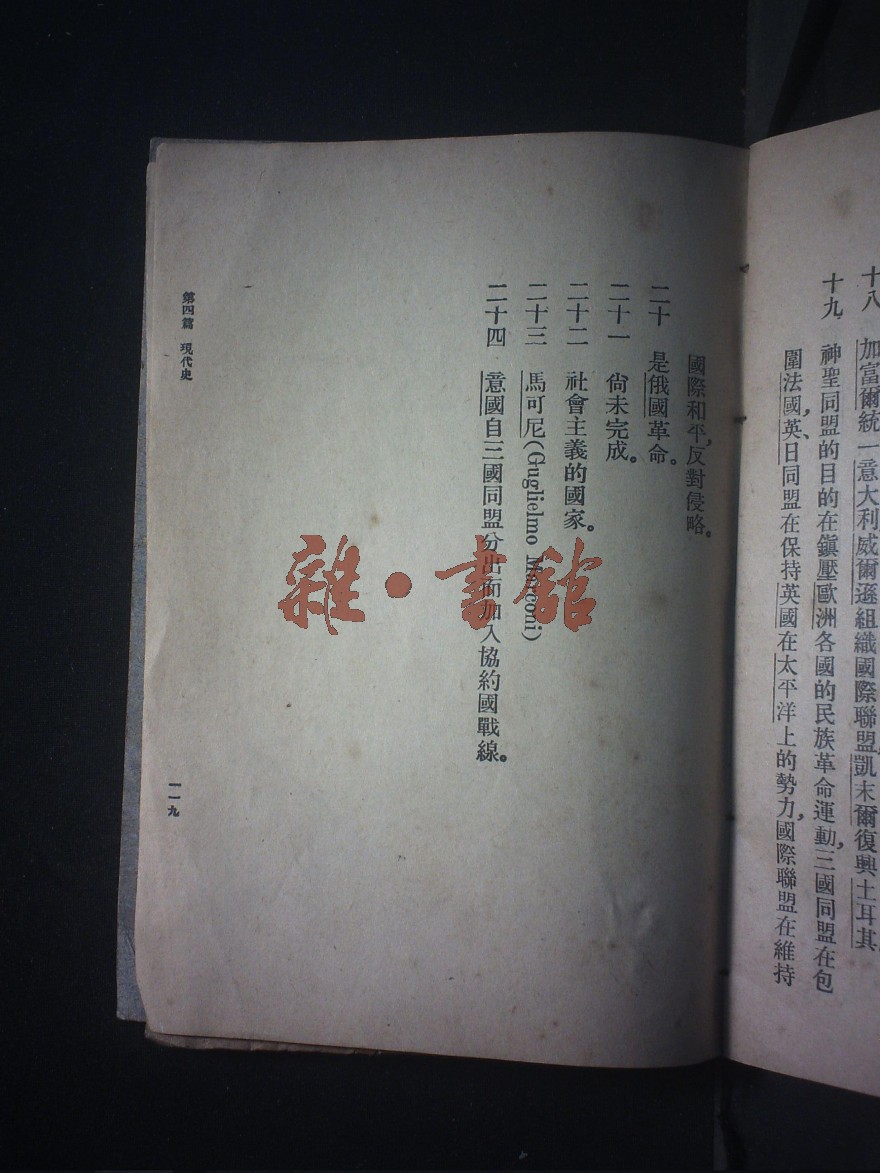 十八　加富爾統一意大利威爾遜組織國際聯盟凱末爾復興土耳其
十九　神聖同盟的目的在鎭壓歐洲各國的民族革命運動，三國同盟在包
圍法國，英、日同盟在保持英國在太平洋上的勢力，國際聯盟在維持
國際和平，反對侵略。
二十　是俄國革命。
二十一　尙未完成。
二十二　社會主義的國家。
二十三　馬可尼(Guglielmo Marconi)
二十四　意國自三國同盟分出而加入協約國戰線。
第四篇　現代史
一一九
雜·書館